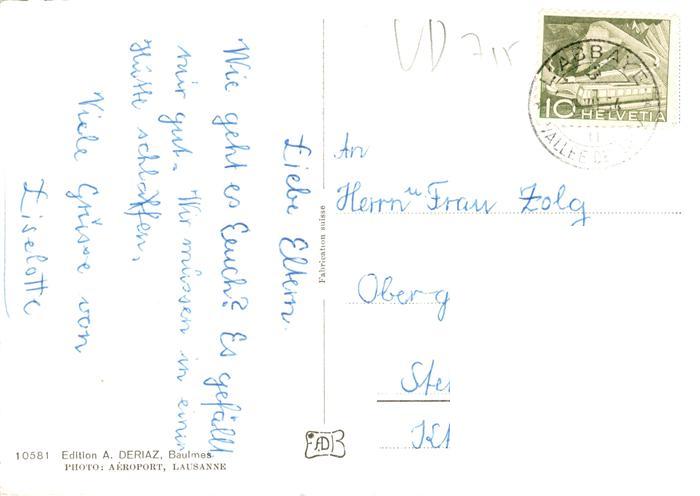 Liebe Eltern.
Wie geht es Eeuch? Es gefällt
mir gut. Wir müssen in einer
Hütte schlaffen.
Viele Grüsse von
Liselotte
10581 Edition A. DERIAZ, Baulmes
PHOTO: AÉROPORT, LAUSANNE
Fabrication suisse
VD
10 HELVETIA
L'ABBAYE
VALLÉE DE
An
Herrn u Frau Zolg
Oberg
Ste
Kt